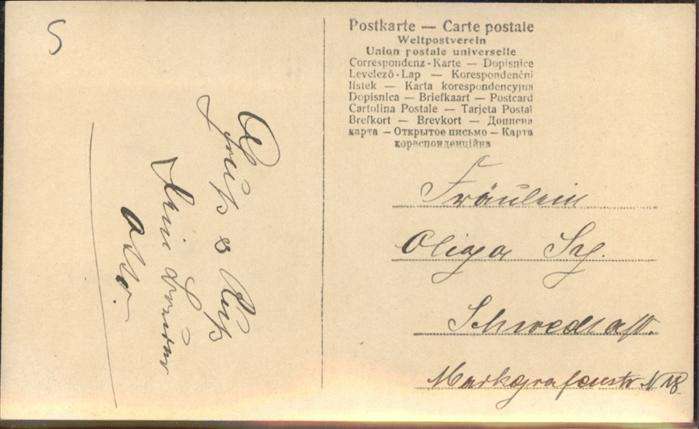 5
Postkarte — Carte postale
Weltpostverein
Union postale universelle
Correspondenz-Karte — Dopisnice
Levelező-Lap — Korespondenční
lístek — Karta korespondencyjna
Dopisnica — Briefkaart — Postcard
Cartolina Postale — Tarjeta Postal
Brefkort — Brevkort — Дописна
карта — Открытое письмо — Карта
кореспонденційна
Gruß & Kuß
Dein
Otto.
Fräulein
Schwedt a/O.
Markgrafenstr N 18